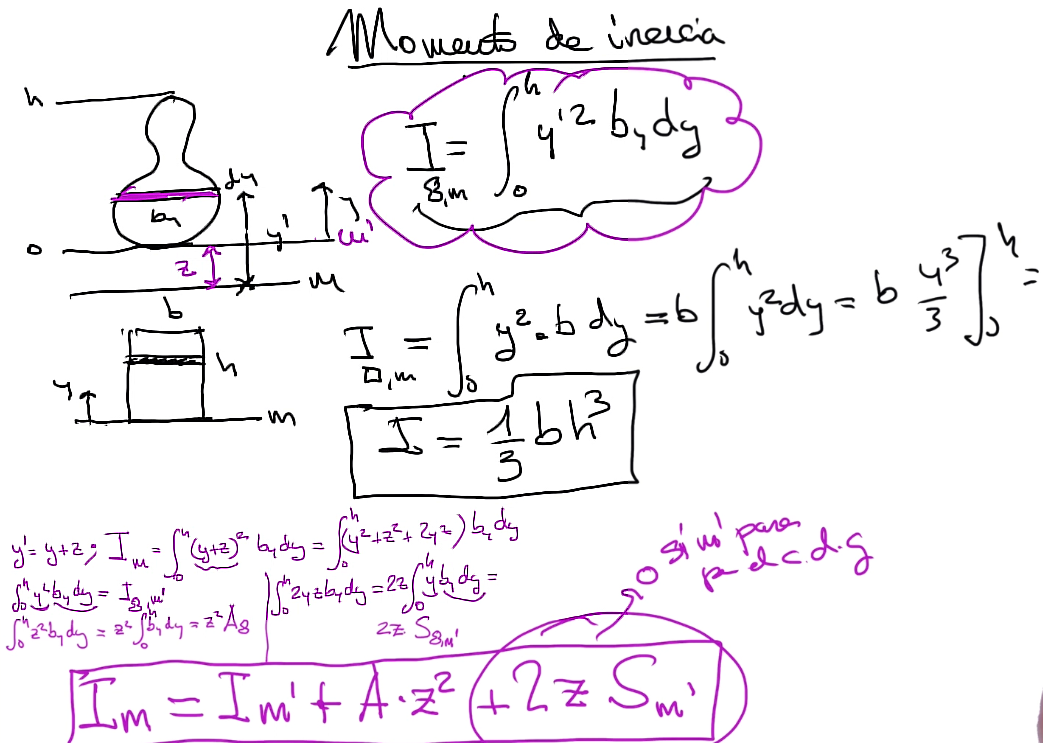 Momento de inercia
h
I 8,m = ∫₀ʰ y'² by dy
dy
by
y'
y
m'
0
z
m
b
h
y
m
I □,m = ∫₀ʰ y² · b dy = b ∫₀ʰ y² dy = b y³/3 ]₀ʰ =
I = 1/3 bh³
y' = y+z ; Im = ∫₀ʰ (y+z)² by dy = ∫₀ʰ (y²+z²+2yz) by dy
∫₀ʰ y² by dy = I 8,m'
∫₀ʰ z² by dy = z² ∫₀ʰ by dy = z² A8
∫₀ʰ 2yz by dy = 2z ∫₀ʰ y by dy =
2z S8,m'
0 si m' pasa
por el c.d.g
Im = Im' + A·z² + 2z Sm'